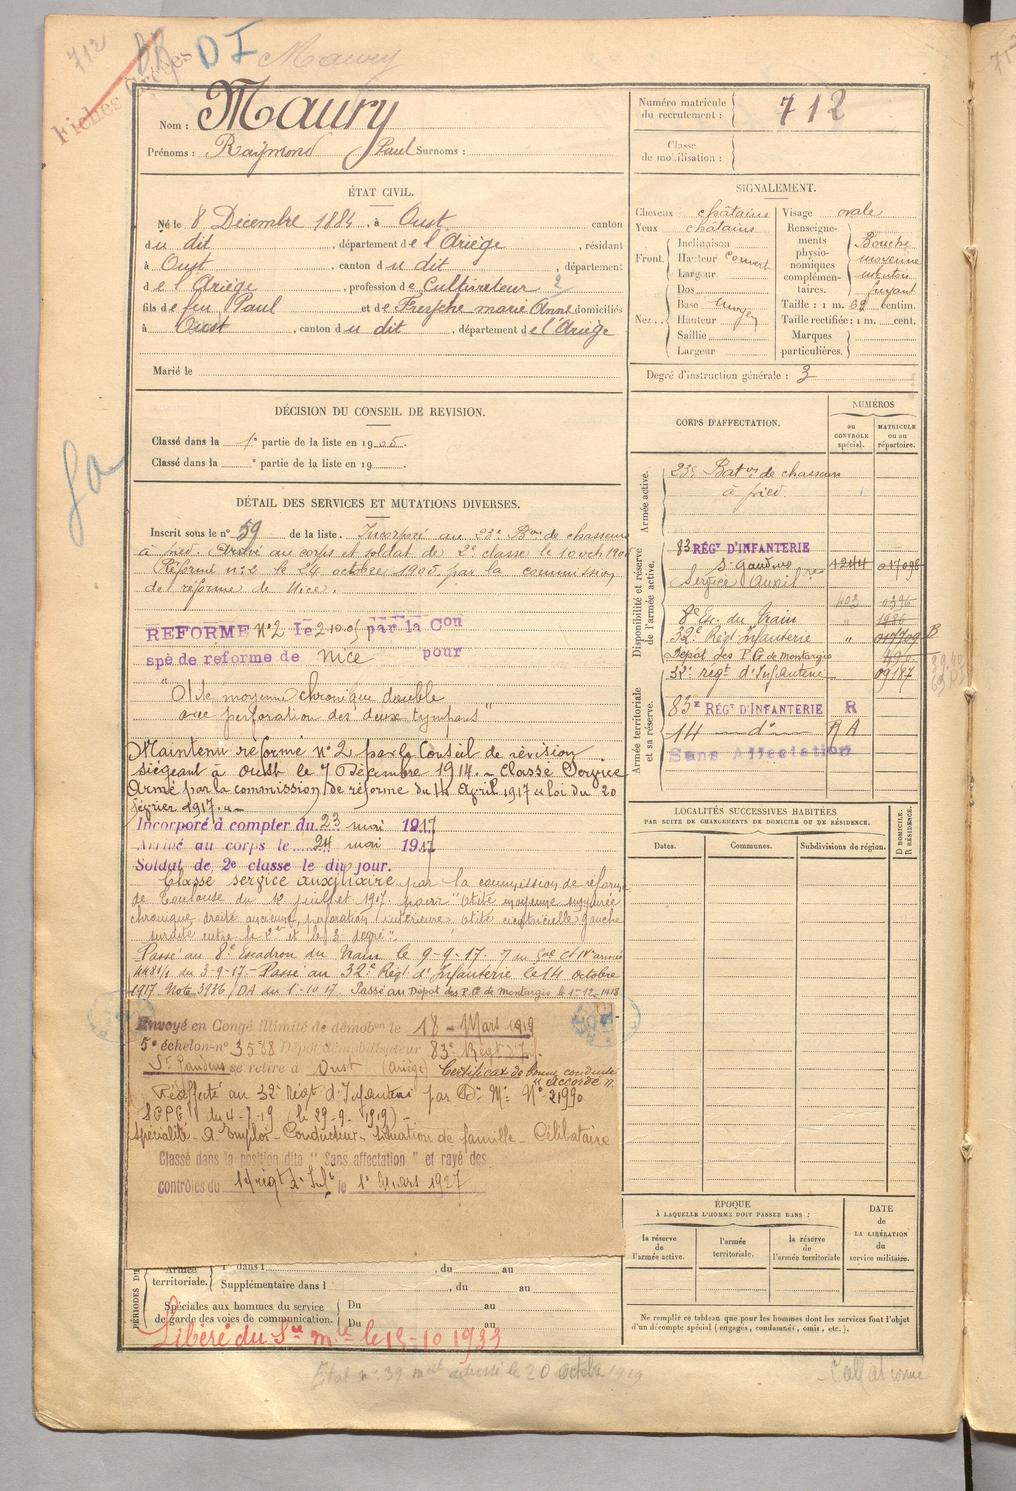 712
BR DI Maury
Fiches Créées
Nom : Maury
Prénoms : Raymond Paul Surnoms :
Numéro matricule du recrutement : 712
Classe de mobilisation :
ÉTAT CIVIL.
Né le 8 Décembre 1884, à Oust, canton
du dit, département de l'Ariège, résidant
à Oust, canton du dit, département
de l'Ariège, profession de Cultivateur 2
fils de feu Paul et de marie Anne domiciliés
à Oust, canton du dit, département de l'Ariège
Marié le
SIGNALEMENT.
Cheveux châtains
Yeux châtains
Front. Inclinaison
Hauteur couvert
Largeur
Nez. Dos
Base moyen
Hauteur
Saillie
Largeur
Visage ovale
Renseignements physionomiques complémentaires. Bouche moyenne menton fuyant
Taille : 1 m. 62 centim.
Taille rectifiée : 1 m. cent.
Marques particulières.
Degré d'instruction générale : 3
DÉCISION DU CONSEIL DE REVISION.
Classé dans la 1e partie de la liste en 1905.
Classé dans la e partie de la liste en 19
DÉTAIL DES SERVICES ET MUTATIONS DIVERSES.
Inscrit sous le n° 59 de la liste. Incorporé au 23e Bon de chasseurs
à pied. Arrivé au corps et soldat de 2e classe le 10 8bre 190
Réformé n° 2 le 24 octobre 1905 par la commission
de réforme de Nice.
REFORME N°2 le par la Con
spè de reforme de Nice pour
"Otite moyenne chronique double
avec perforation des deux tympans"
Maintenu réformé n° 2 par le Conseil de révision
siégeant à Oust le 7 Décembre 1914. - Classé Service
Armé par la commission de réforme du 14 Avril 1917 loi du 20
février 1917.
Incorporé à compter du 23 mai 1917
Arrivé au corps le 24 mai 1917
Soldat de 2e classe le dit jour.
Classé service auxiliaire par la commission de réforme
de Toulouse du juillet 1917 pour "otite moyenne suppurée
chronique droite ancienne, perforation otite cicatricielle gauche
surdité entre le 2e et le 3e degré".
Passé au 8e Escadron du Train le 9-9-17.
4481/1 du 3-9-17 - Passé au 32e Régt d'Infanterie le 14 octobre
1917. Note 3936/DA du 1-10-17. Passé au Dépôt des P.G de Montargis le 1-12-1918
Envoyé en Congé illimité de démobon le 18 - Mars 1919
5e échelon-n° 3588 Dépôt démobilisateur 83e Régt d'I.
St Gaudens se retire à Oust (Ariège) Certificat de bonne conduite
"Accordé"
Réaffecté au 32e Régt d'Infanterie par D. M. N° 21990
SGPG du 4-7-19 (le 29-9-1919) -
Spécialité - A. Emploi - Conducteur - Situation de famille - Célibataire
Classé dans la position dite "Sans affectation" et rayé des
contrôles du 14 régt d'Infie le 1er Mars 1927
CORPS D'AFFECTATION.
NUMÉROS
au CONTRÔLE spécial.
MATRICULE ou au répertoire.
Armée active.
23e Baton de chasseurs
à pied.
Disponibilité et réserve de l'armée active.
83 RÉGt D'INFANTERIE
St Gaudens 1244
Service Auxilre
403 0396
8e Es. du Train "
32e Régt Infanterie " B
Dépôt des P G de Montargis
32e régt d'Infanterie 09187
Armée territoriale et sa réserve.
83e RÉGt D'INFANTERIE R
14 — do — RA
Sans Affectation
LOCALITÉS SUCCESSIVES HABITÉES
PAR SUITE DE CHANGEMENTS DE DOMICILE OU DE RÉSIDENCE.
Dates. Communes. Subdivisions de région. D DOMICILE. R RÉSIDENCE.
ÉPOQUE
À LAQUELLE L'HOMME DOIT PASSER DANS :
la réserve de l'armée active. l'armée territoriale. la réserve de l'armée territoriale
DATE de LA LIBÉRATION du service militaire.
Ne remplir ce tableau que pour les hommes dont les services font l'objet
d'un décompte spécial (engagés, condamnés, omis, etc.).
PÉRIODES D'
Armée territoriale. 1e dans l , du au
Supplémentaire dans l , du au
Spéciales aux hommes du service de garde des voies de communication. Du au
Du au
Libéré du Sce mre le 15-10 1933
État n° 39 adressé le 20 octobre 1919
Collationné